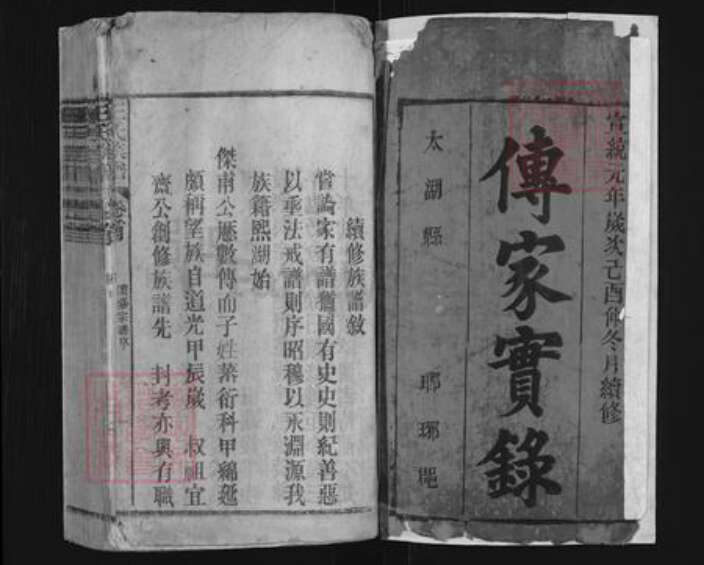 宣統元年歲次己酉仲冬月續修
傳家實錄
太湖縣
瑯琊
續修族譜敘
嘗論家有譜猶國有史史則紀善惡
以垂法戒譜則序昭穆以永淵源我
族籍熙湖始
傑甫公歷數傳而子姓蕃衍科甲綿延
頗稱望族自道光甲辰歲 叔祖宜
齋公創修族譜先 封考亦與有職
卷首
續修宗譜序